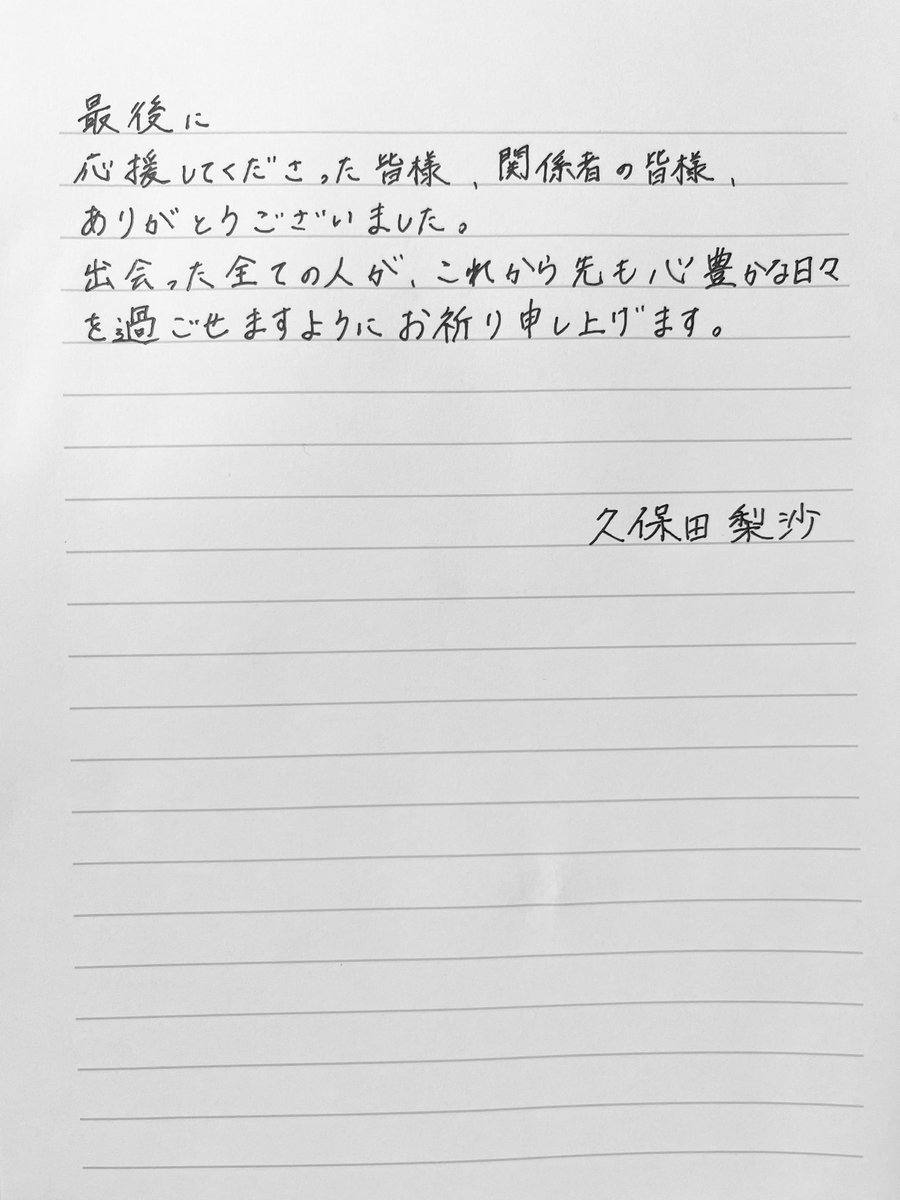 最後に
応援してくださった皆様、関係者の皆様、
ありがとうございました。
出会った全ての人が、これから先も心豊かな日々
を過ごせますようにお祈り申し上げます。
久保田 梨沙